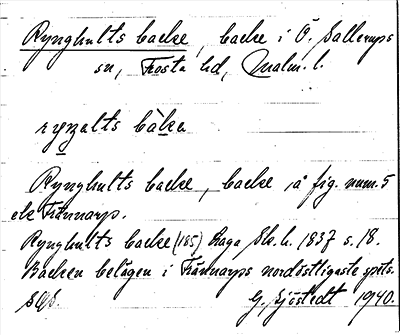 Rynghults backe, backe i Ö. Sallerups
sn, Frosta hd, Malm. l.
ryŋalts bàka
Rynghults backe, backe å fig. num. 5
ele Trännarp.
Rynghults backe (185) Haga, Sk. h. 1837 s. 18.
Backen belägen i Trännarps nordöstligaste spets.
G. Sjöstedt 1940.